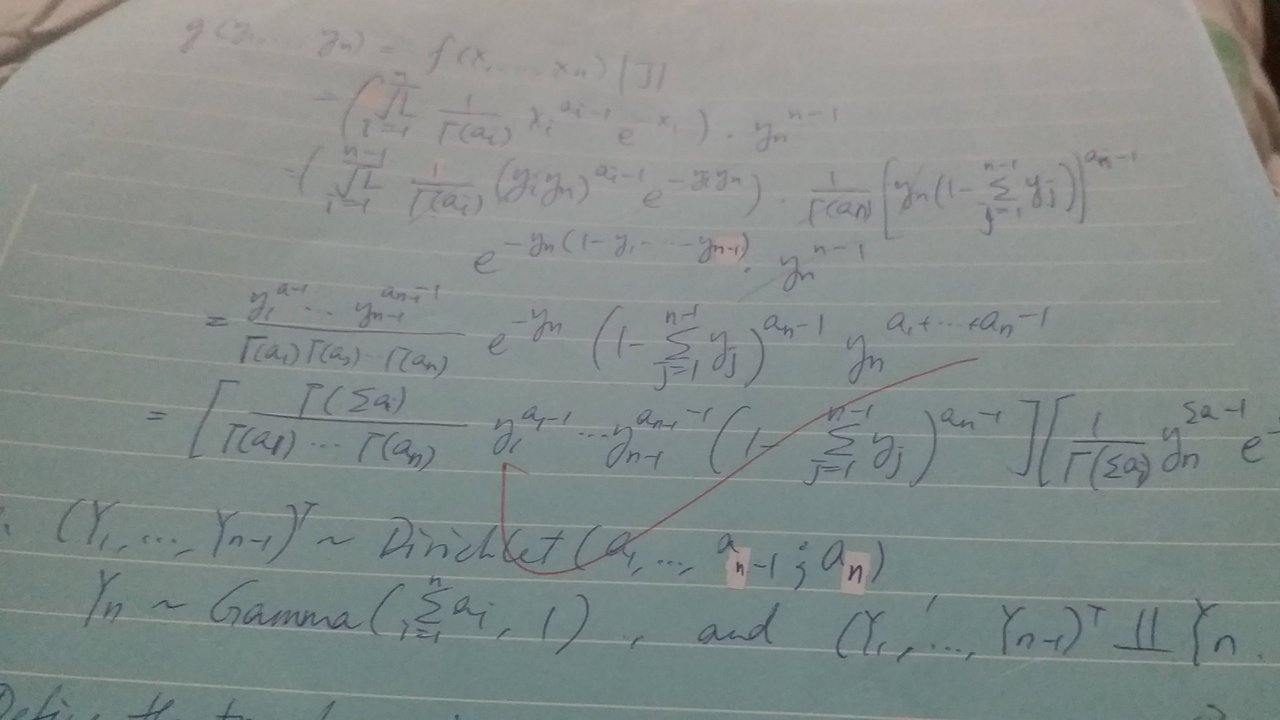 g(y₁ … yₙ) = f(x₁ … xₙ) |J|
= (∏_{i=1}^{n} 1/Γ(aᵢ) xᵢ^{aᵢ-1} e^{-xᵢ}) · yₙ^{n-1}
= (∏_{i=1}^{n-1} 1/Γ(aᵢ) (yᵢyₙ)^{aᵢ-1} e^{-yᵢyₙ}) · 1/Γ(aₙ) [yₙ(1-∑_{j=1}^{n-1} yⱼ)]^{aₙ-1}
e^{-yₙ(1-y₁-…-yₙ₋₁)} · yₙ^{n-1}
= y₁^{a-1} … yₙ₋₁^{aₙ₋₁-1} / Γ(a₁)Γ(a₂)…Γ(aₙ) e^{-yₙ} (1-∑_{j=1}^{n-1} yⱼ)^{aₙ-1} yₙ^{a₁+…+aₙ-1}
= [Γ(∑aᵢ) / Γ(a₁)…Γ(aₙ) y₁^{a₁-1} … yₙ₋₁^{aₙ₋₁-1} (1-∑_{j=1}^{n-1} yⱼ)^{aₙ-1}] [1/Γ(∑aᵢ) yₙ^{∑a-1} e^-
(Y₁, …, Yₙ₋₁)ᵀ ~ Dirichlet(a₁, …, aₙ₋₁; aₙ)
Yₙ ~ Gamma(∑_{i=1}^{n} aᵢ, 1), and (Y₁, …, Yₙ₋₁)ᵀ ⫫ Yₙ.
Define the